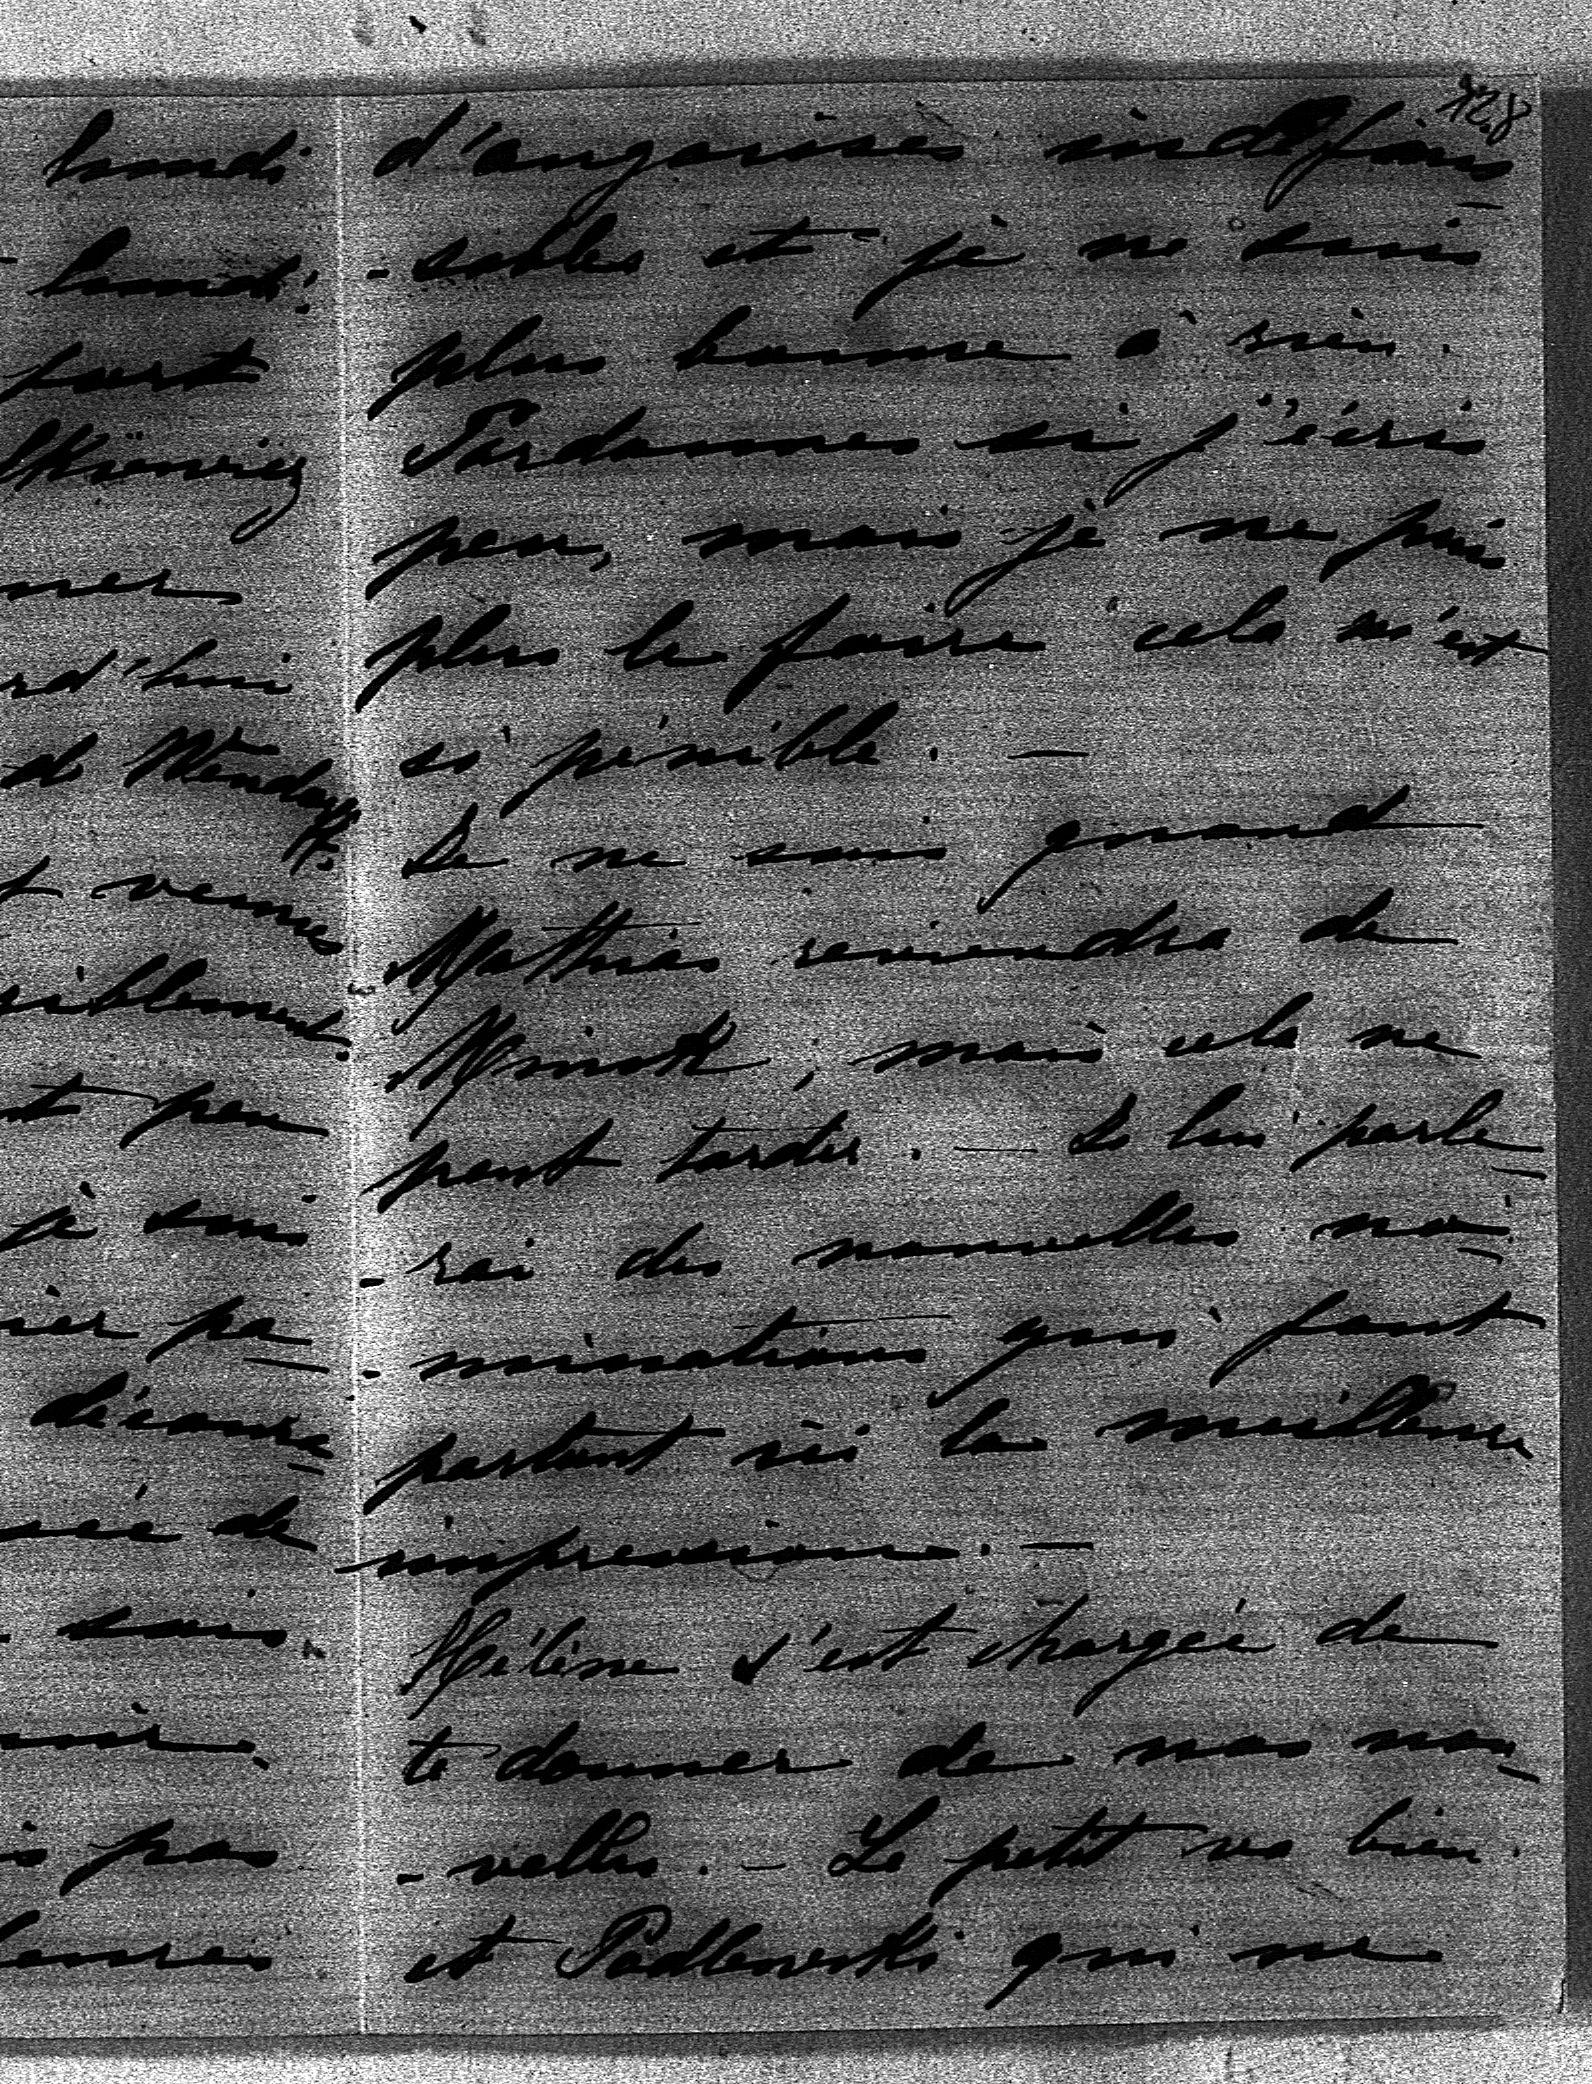 128
lundi
lundi
part
ner
rd'hui
de Wenden
R.
t venues
siblement.
nt peu
je suis
ier pa-
décou
sée de
sais
oir.
s pas
heures
d'angoisses indéfinis
-sables et je ne suis
plus bonne à rien.
Pardonnes si j'écris
peu, mais je ne puis
plus le faire cela m'est
si pénible. —
Je ne sais quand
Mathias reviendra de
Minsk, mais cela ne
peut tarder. — Je lui parle-
-rai des nouvelles no-
-minations qui font
partout ici la meilleure
impression. —
Hélène s'est chargée de
te donner de nos nou-
-velles. — Le petit va bien.
et Podlewski qui ne